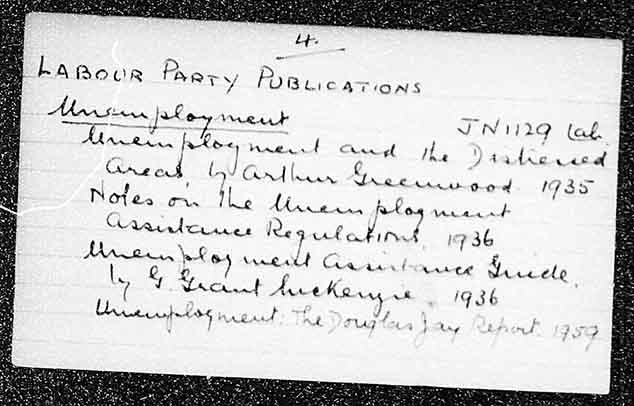 4.
LABOUR PARTY PUBLICATIONS
Unemployment JN1129 Lab.
Unemployment and the Distressed
Areas, by Arthur Greenwood. 1935
Notes on the Unemployment
Assistance Regulations, 1936
Unemployment Assistance Guide,
by G. Grant McKenzie. 1936
Unemployment: The Douglas Jay Report. 1959